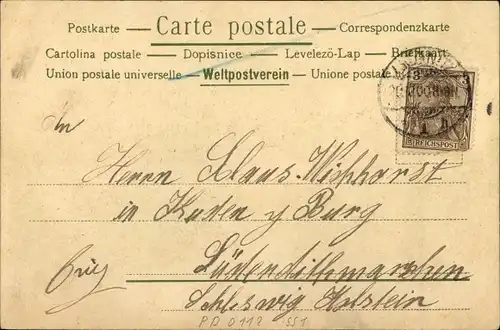 Postkarte — Carte postale — Correspondenzkarte
Cartolina postale — Dopisnice — Levelezö-Lap — Briefkaart
Union postale universelle — Weltpostverein — Unione postale
3 3
REICHSPOST
An
Herrn Claus Wischhorst
in Kuden y Burg
Süderdithmarschen
Schleswig Holstein
PA 0112 551